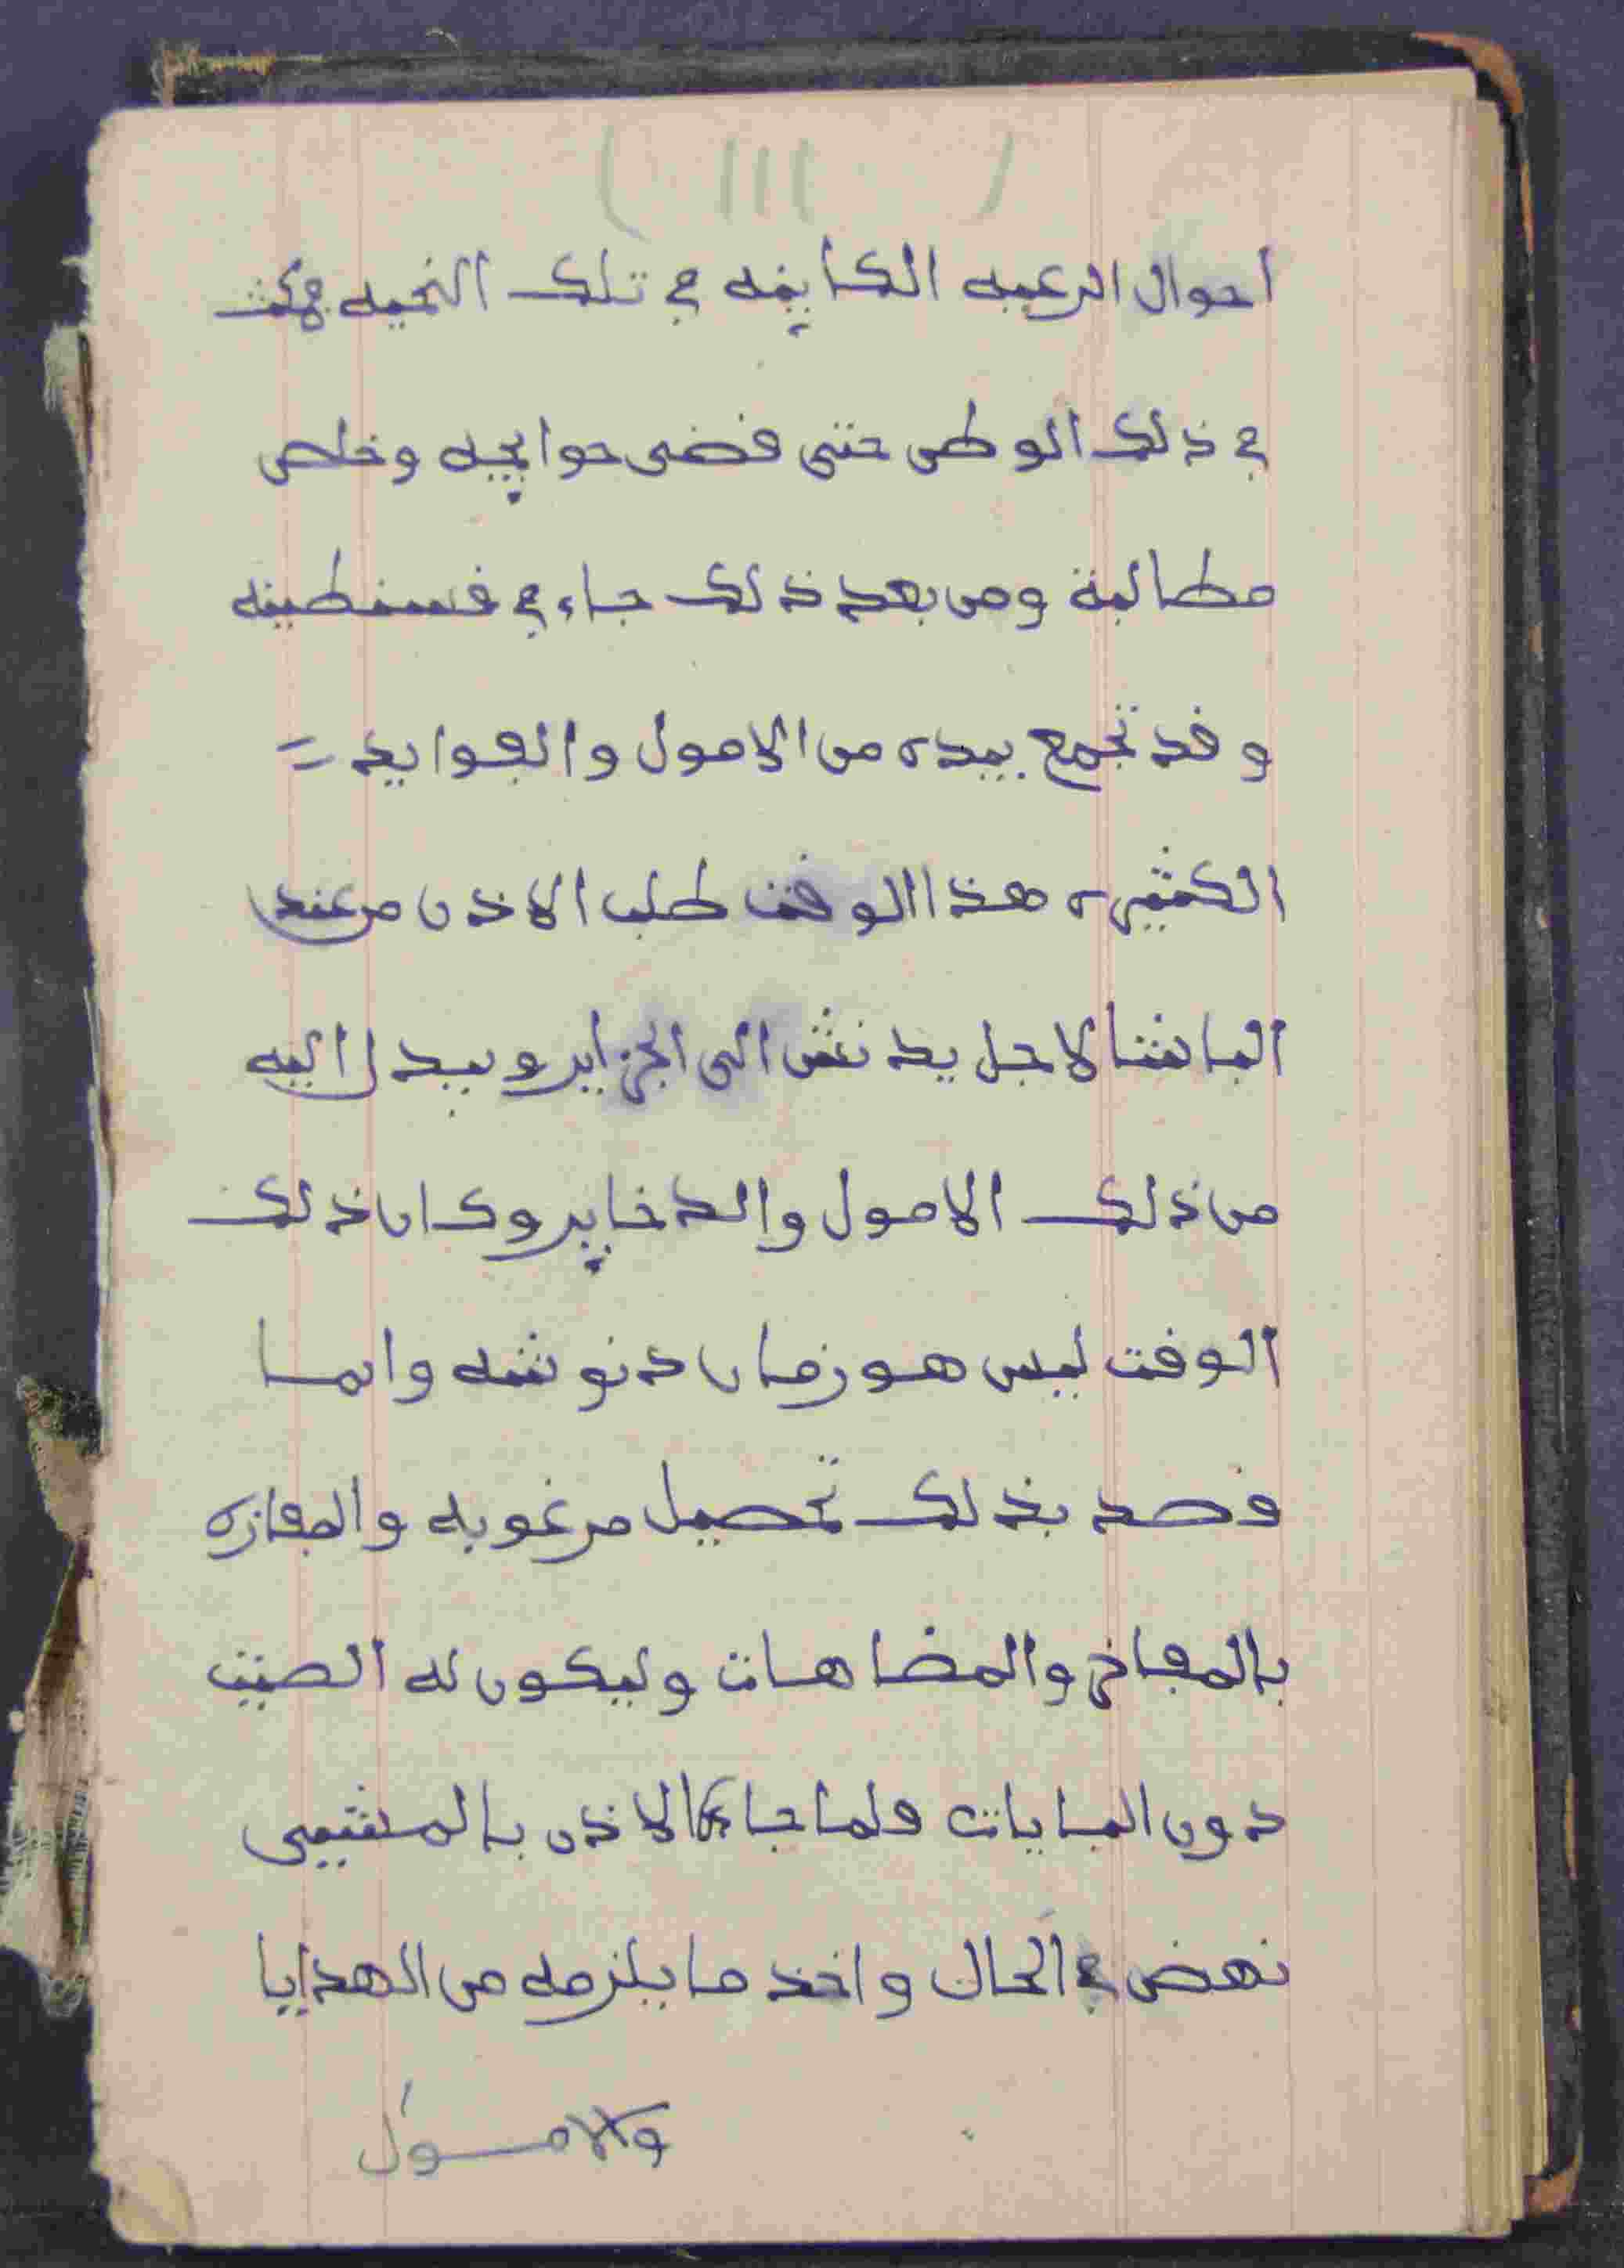 ( 111 )
احوال الرعيه الكاينه في تلك النحيه فمكث
في ذلك الوطن حتى قضى حوايجه وخلص
مطالبة ومن بعد ذلك جاء في قسنطينه
وقد تجمع بيده من الامول والفوايد =
الكثيره هذا الوقت طلب الاذن من عند
الباشا لاجل يدنش الى الجزاير ويبدل اليه
من ذلك الامول والدخاير وكان ذلك
الوقت ليس هو زمان دنوشه وانما
قصد بذلك تحصيل مرغوبه والمفازه
بالمفاخر والمضاهات وليكون له الصيت
دون البايات ولما جاء الاذن بالمشيي
نهض في الحال واخذ ما يلزمه من الهدايا
والامول